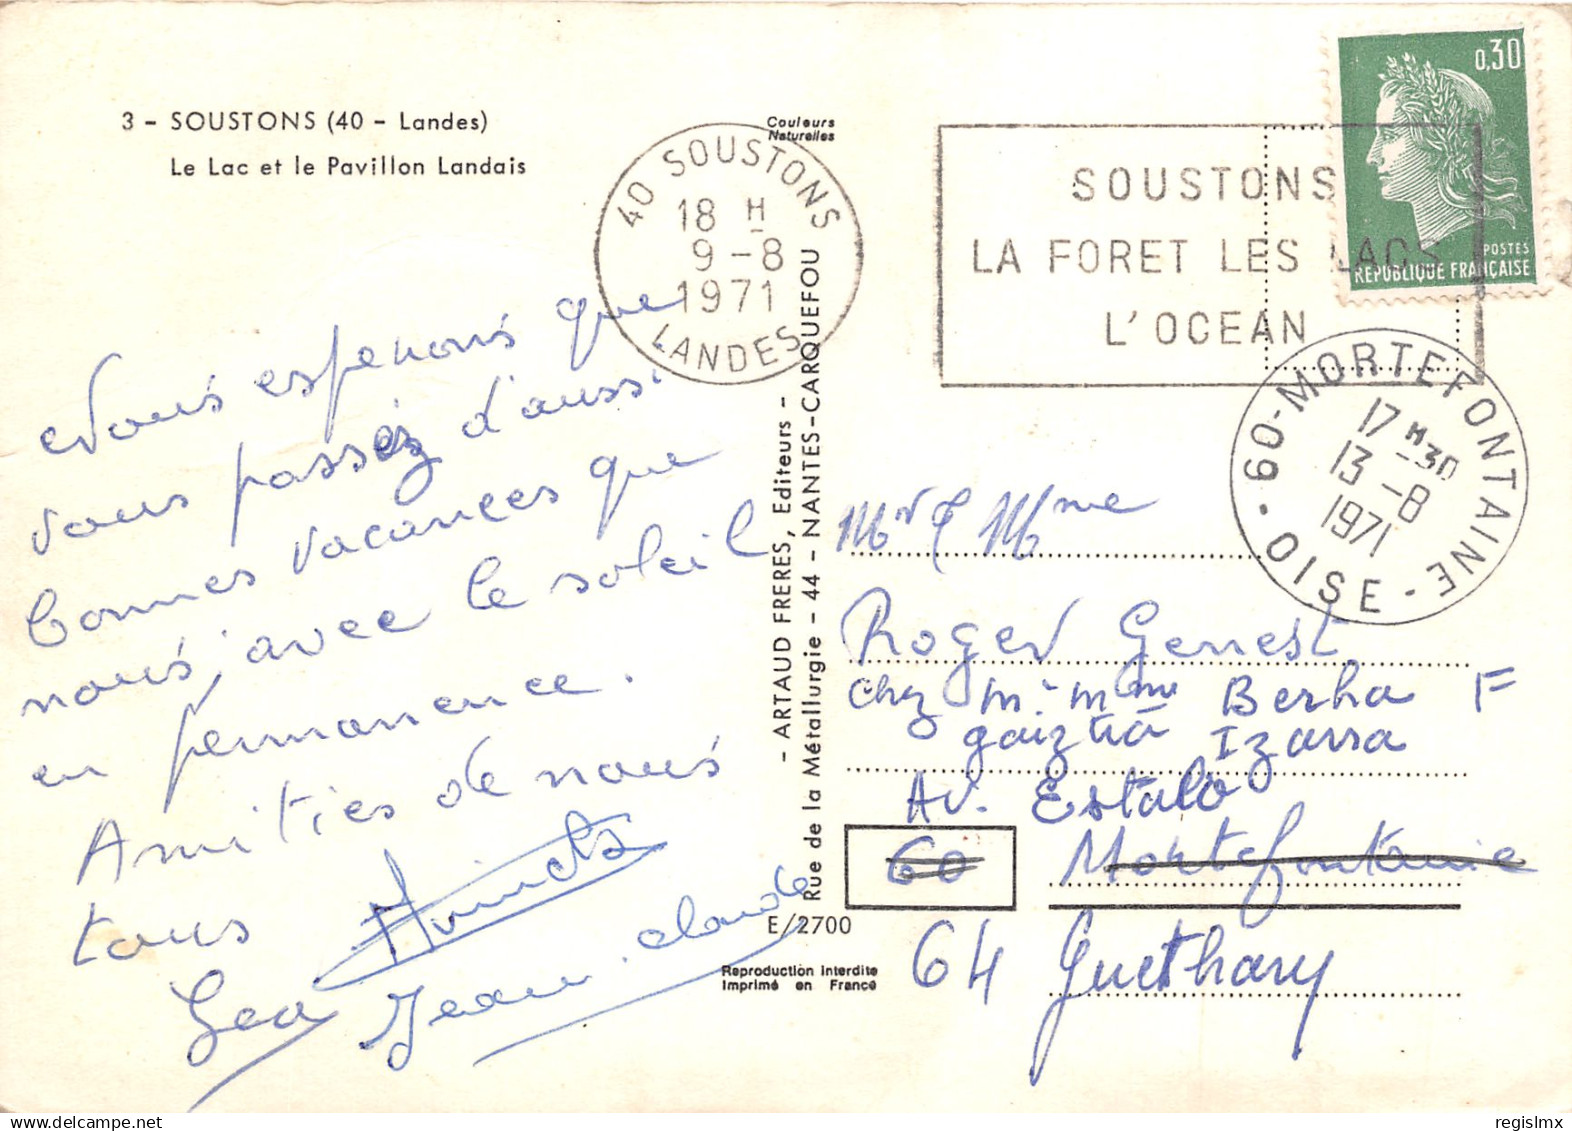 3 - SOUSTONS (40 - Landes)
Le Lac et le Pavillon Landais
Couleurs
Naturelles
40 SOUSTONS
18 H
9-8
1971
LANDES
SOUSTONS
LA FORET LES LACS
L'OCEAN
0,30
POSTES
REPUBLIQUE FRANÇAISE
60-MORTEFONTAINE
17 H 30
13-8
1971
OISE
Nous esperons que
vous passez d'aussi
bonnes vacances que
nous, avec le soleil
en permanence.
Amitiés de nous
tous
Jean-claude
- ARTAUD FRERES, Editeurs -
Rue de la Métallurgie - 44 - NANTES-CARQUEFOU
E/2700
Reproduction interdite
Imprimé en France
Mr & Mme
Roger Genest
chez Mr Mme Berha F
gaiztia Izarra
Av. Estalo
60 Mortefontaine
64 Guethary